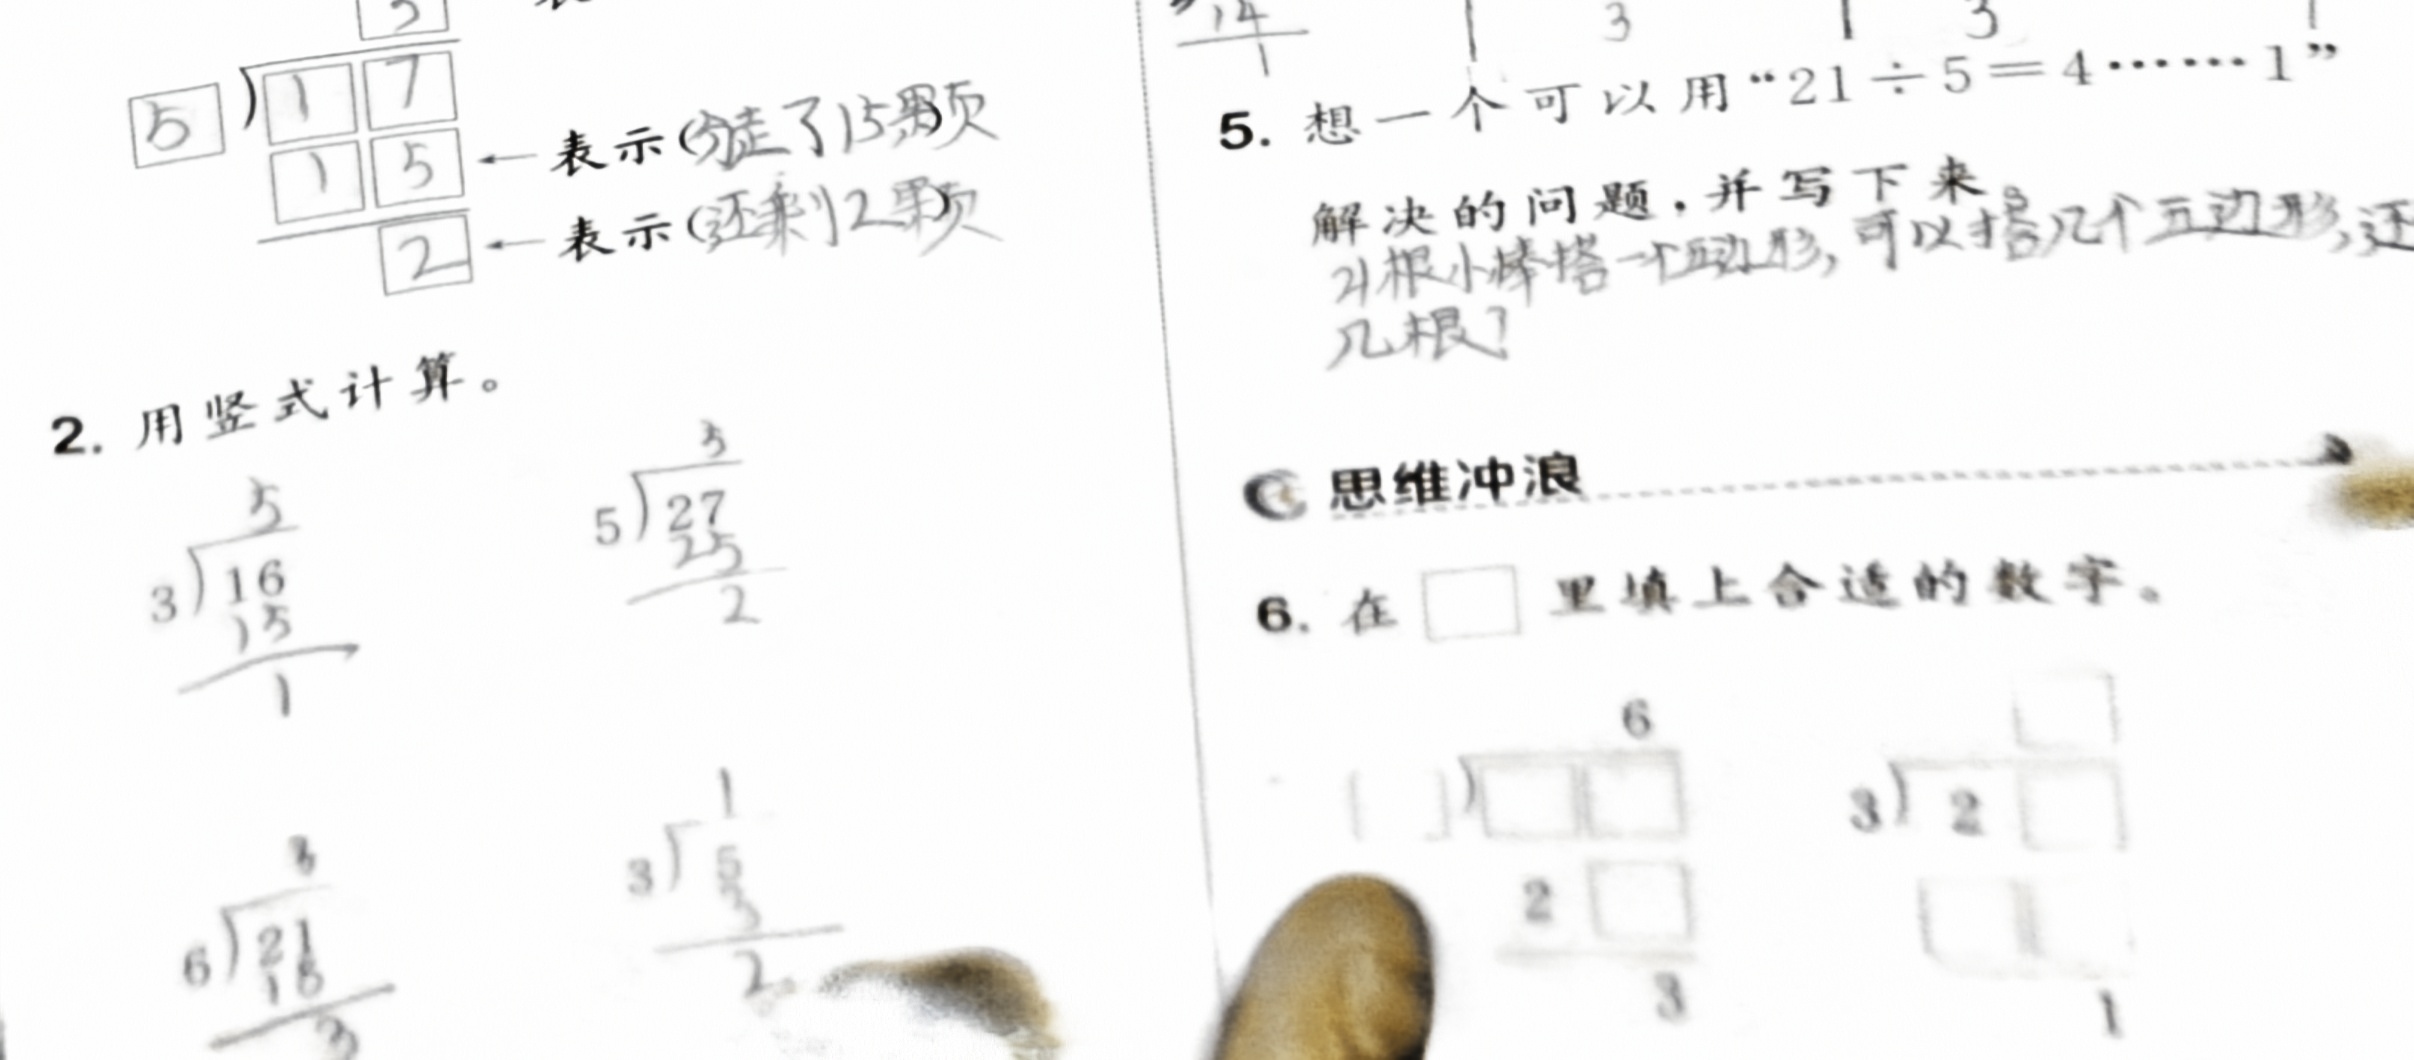 3
5 ) 1 7
1 5 ← 表示(分走了15颗)
2 ← 表示(还剩2颗)
2. 用竖式计算。
5
3 ) 16
15
1
5
5 ) 27
25
2
3
6 ) 21
18
3
1
3 ) 5
3
2
14
1
3
3
5. 想一个可以用“21÷5=4……1”
解决的问题,并写下来。
21根小棒搭一个五边形,可以搭几个五边形,还
几根?
思维冲浪
6. 在□里填上合适的数字。
6
□ ) □ □
2 □
3
□
3 ) 2 □
□ □
1